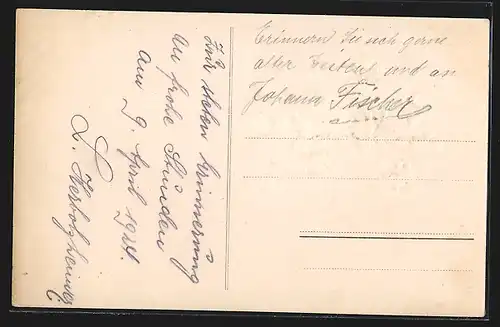 Zur steten Erinnerung
an frohe Stunden
am 9. April 1924.
L. Herbolzheimer
Erinnern Sie sich gerne
alter Zeiten und an
Johann Fischer